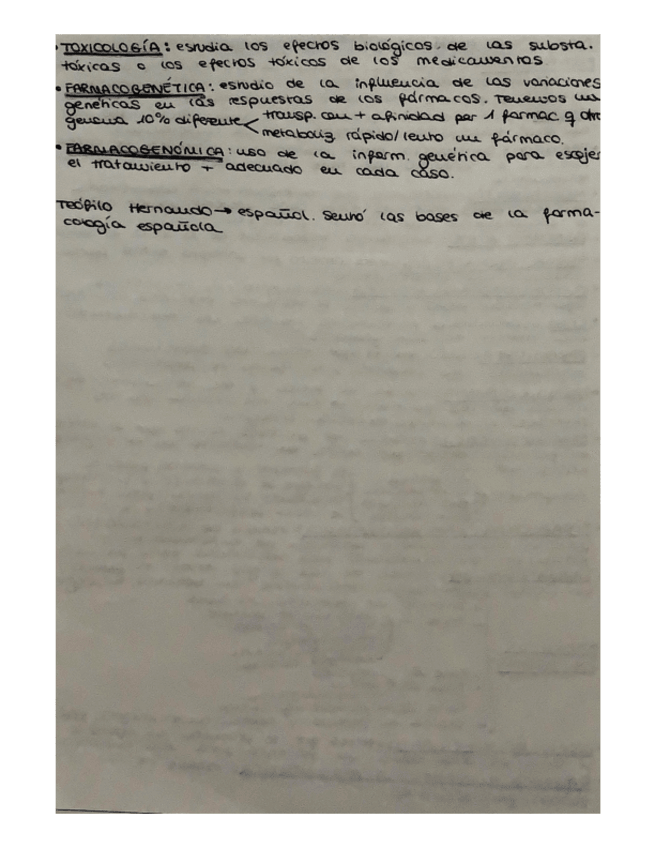 · TOXICOLOGÍA: estudia los efectos biológicos de las substa.
tóxicas o los efectos tóxicos de los medicamentos
· FARMACOGENÉTICA: estudio de la influencia de las variaciones
genéticas en las respuestas de los fármacos. Tenemos un
genoma 10% diferente < transp. con + afinidad por 1 fármac q otro
metaboliz rápido/lento un fármaco.
· FARMACOGENÓMICA: uso de la inform. genética para escojer
el tratamiento + adecuado en cada caso.
Teófilo Hernando → español. Sentó las bases de la farma-
cología española